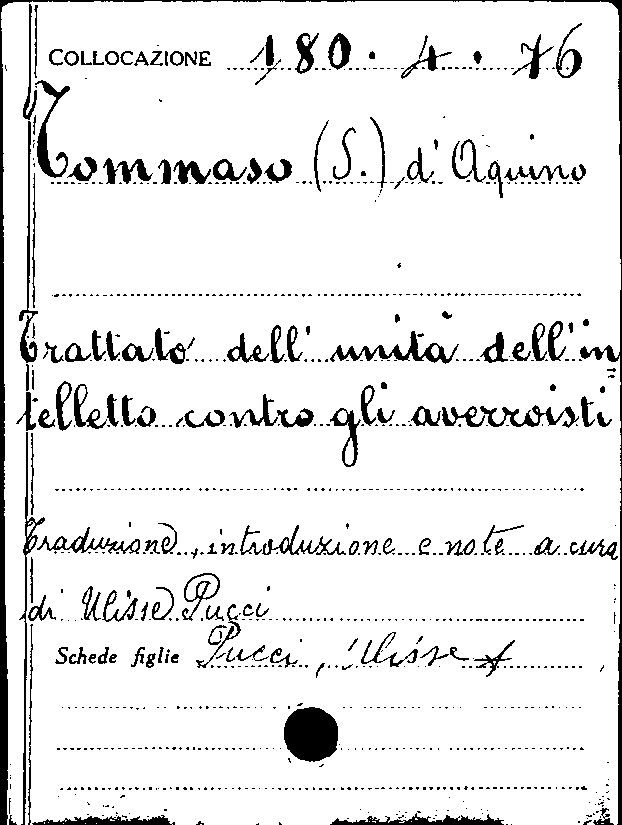 COLLOCAZIONE 180 · 4 · 76
Tommaso (S.) d' Aquino
Trattato dell' unità dell' in=
telletto contro gli averroisti
Traduzione, introduzione e note a cura
di Ulisse Pucci
Schede figlie Pucci, Ulisse